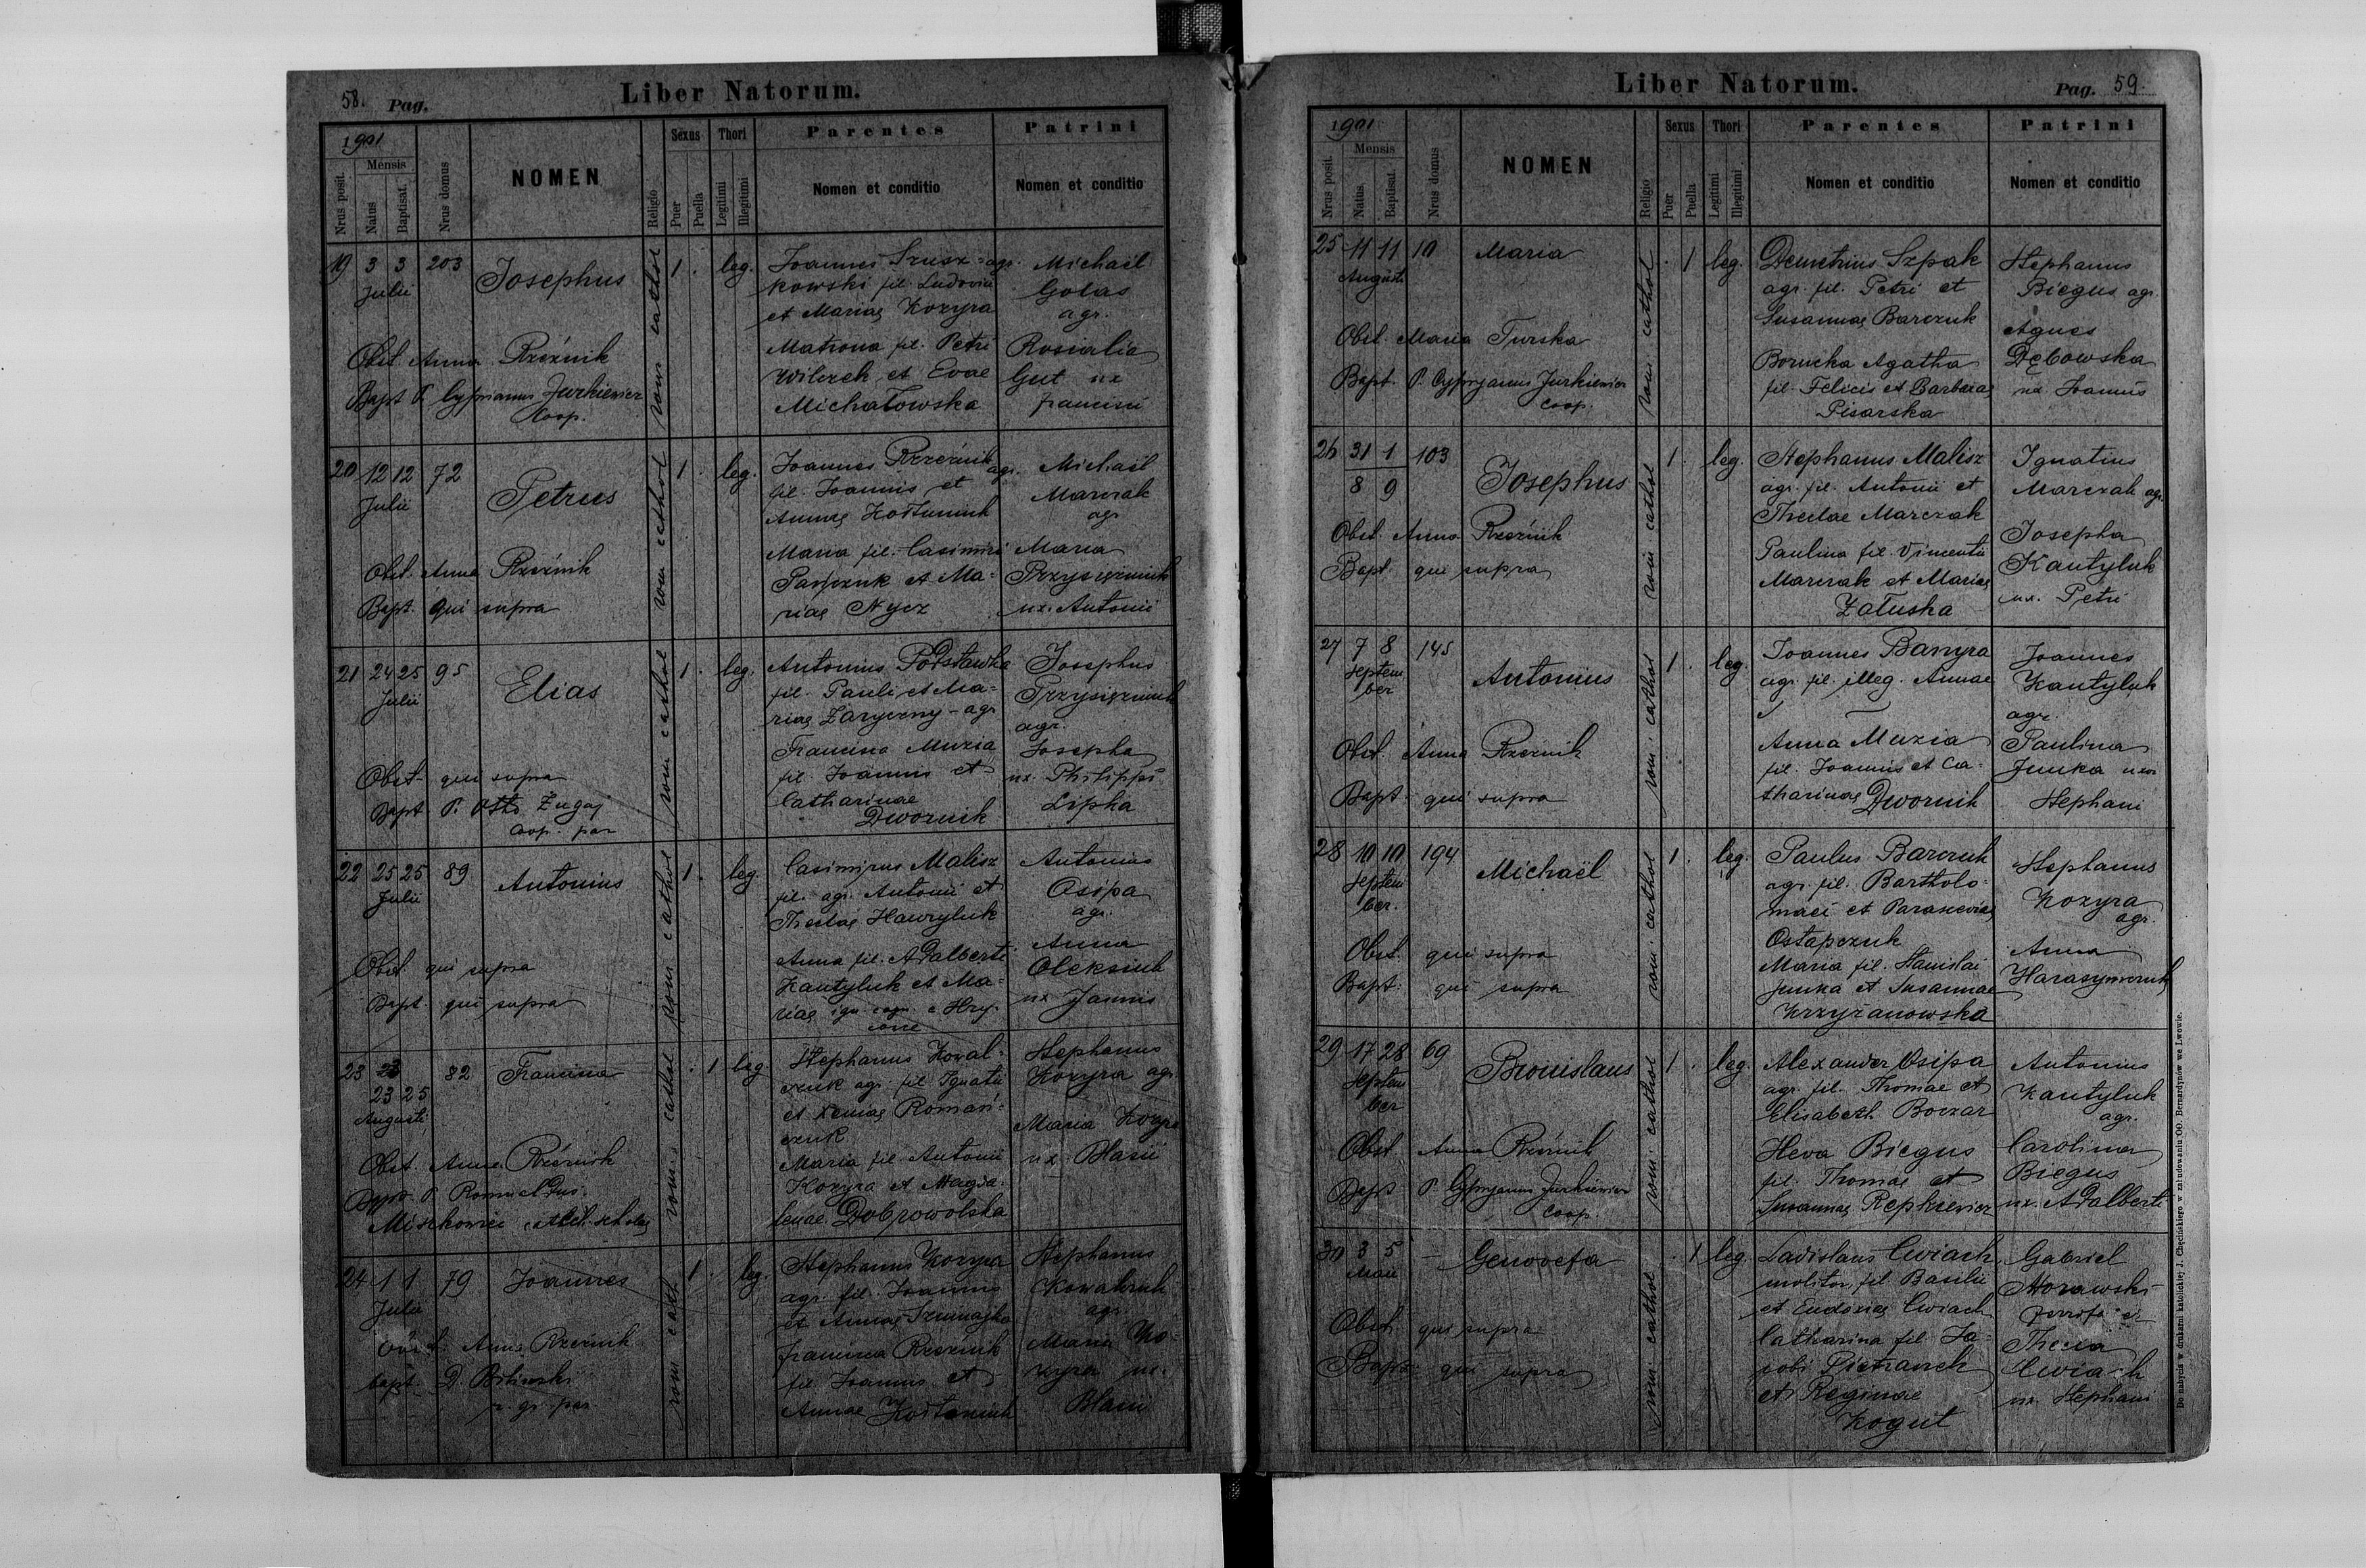 58. Pag.
Liber Natorum.
1901
Nrus posit.
Mensis
Natus
Baptisat.
Nrus domus
NOMEN
Religio
Sexus
Puer
Puella
Thori
Legitimi
Illegitimi
Parentes
Nomen et conditio
Patrini
Nomen et conditio
19 3 3 203
Julii
Josephus
rom cathol
1. leg.
Joannes Szusz- agr.
kowski fil. Ludovici
et Mariae Kozyra
Matrona fil. Petri
Wilczek et Evae
Michałowska
Michaël
Golas
agr.
Rosialia
Gut ux
Francisci
Obst. Anna Rzeźnik
Bapt P. Cyprianus Jurkiewicz
Coop.
20 12 12 72
Julii
Petrus
rom cathol
1. leg.
Joannes Rzeźnik agr.
fil. Joannis et
Annae Kołtuniuk
Maria fil. Casimiri
et Ma-
riae Nycz
Michaël
Marczak
agr
Maria
Przysiężniuk
ux. Antonii
Obst. Anna Rzeźnik
Bapt. qui supra
21 24 25 95
Julii
Elias
rom cathol
1. leg.
Antonius Podstawka
fil. Pauli et Ma-
riae Zaryczny - agr
Francisca Muzia
fil. Joannis et
Catharinae
Dwornik
Josephus
Przysiężniuk
agr.
Josepha
ux. Philippi
Lipka
Obst- qui supra
Bapt P. Otto Zugaj
Coop. par
22 25 25 89
Julii
Antonius
rom cathol
1. leg.
Casimirus Malisz
fil. agr. Antonii et
Theclae Hawryluk
Anna fil. Adalberti
Kantyluk et Ma-
riae ign. cogn. e Hry-
Antonius
Osipa
agr.
Anna
Oleksiuk
ux Joannis
Obst. qui supra
Bapt. qui supra
23 82
23 25
Augusti
Francisca
rom. cathol
. 1 leg
Stephanus Kowal-
czuk agr. fil Ignatii
et Xeniae Romań-
czuk
Maria fil Antonii
Kozyra et Magda-
lenae Dobrowolska
Stephanus
Kozyra agr.
Maria Kozyra
ux. Blasii
Obst. Anna Rzeźnik
Bapt. P. Romualdus
Miszkowicz
24 1 1 79
Julii
Joannes
rom cath
1. leg.
Stephanus Kozyra
agr. fil. Joannis
et Annae Szumajko
Francisca Rzeźnik
fil. Joannis et
Annae Kołtoniuk
Stephanus
Kowalczuk
agr.
Maria Ko-
zyra ux.
Blasii
Obst. Anna Rzeźnik
bapt. D. Biliński
r. gr. par
Liber Natorum.
Pag. 59.
1901
Nrus posit.
Mensis
Natus.
Baptisat.
Nrus domus
NOMEN
Religio
Sexus
Puer
Puella
Thori
Legitimi
Illegitimi.
Parentes
Nomen et conditio
Patrini
Nomen et conditio
25 11 11 10
Augusti
Maria
rom cathol
. 1 leg.
Demetrius Szpak
agr. fil. Petri et
Susannae Barczuk
Borucka Agatha
fil. Felicis et Barbarae
Pisarska
Stephanus
Biegus agr.
Agnes
Dębowska
ux. Joannis
Obst. Maria Turska
Bapt. P. Cyprjanus Jurkiewicz
Coop.
26 31 1 103
8 9
Josephus
rom cathol
1. leg.
Stephanus Malisz
agr. fil. Antonii et
Theclae Marczak
Paulina fil. Vincentii
Marczak et Mariae
Załuska
Ignatius
Marczak agr.
Josepha
Kantyluk
ux. Petri
Obst. Anna Rzeźnik
Bapt. qui supra
27 7 8 145
Septem
ber
Antonius
rom. cathol
1. leg.
Joannes Banyra
agr. fil. illeg. Annae
Anna Muzia
fil. Joannis et Ca-
tharinae Dwornik
Joannes
Kantyluk
agr.
Paulina
Junka uxor
Stephani
Obst. Anna Rzeźnik
Bapt- qui supra
28 10 10 194
Septem
ber.
Michaël
rom. cathol
1. leg.
Paulus Barczuk
agr. fil. Bartholo-
maei et Parascevias
Ostapczuk
Maria fil. Stanislai
Junka et Susannae
Krzyżanowska
Stephanus
Kozyra
agr.
Anna
Harasymczuk
Obst. qui supra
Bapt: qui supra
29 17 28 69
Septem
ber
Bronislaus
rom. cathol
1. leg.
Alexander Osipa
agr. fil. Thomae et
Elisabeth Boczar
Heva Biegus
fil. Thomae et
Susannae Repkiewicz
Antonius
Kantyluk
agr.
Carolina
Biegus
ux. Adalberti
Obst. Anna Rzeźnik
Bapt P. Cyprjanus Jurkiewicz
Coop.
30 3 5 -
Maii
Genovefa
rom. cathol
. 1 leg.
Ladislaus Cwiach
molitor, fil. Basilii
et Eudoxiae Cwiach
Catharina fil. Ja-
cobi Pietraszek
et Reginae
Kogut
Gabriel
Morawski
Thecla
Cwiach
ux. Stephani
Obst. qui supra
Bapt- qui supra
Do nabycia w drukarni katolickiej J. Chęcińskiego w zabudowaniu OO. Bernardynów we Lwowie.